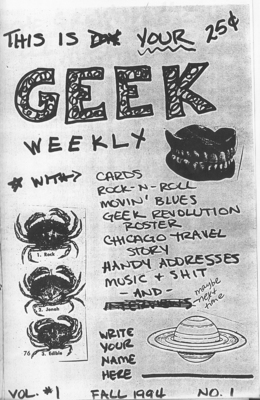 THIS IS YOUR 25¢
GEEK
WEEKLY
* WITH → CARDS
ROCK-N-ROLL
MOVIN' BLUES
GEEK REVOLUTION
ROSTER
CHICAGO TRAVEL
STORY
HANDY ADDRESSES
MUSIC & SHIT
- AND -
maybe
next
time
1. Rock
2. Jonah
76 3. Edible
WRITE
YOUR
NAME
HERE
VOL. #1 FALL 1994 NO. 1